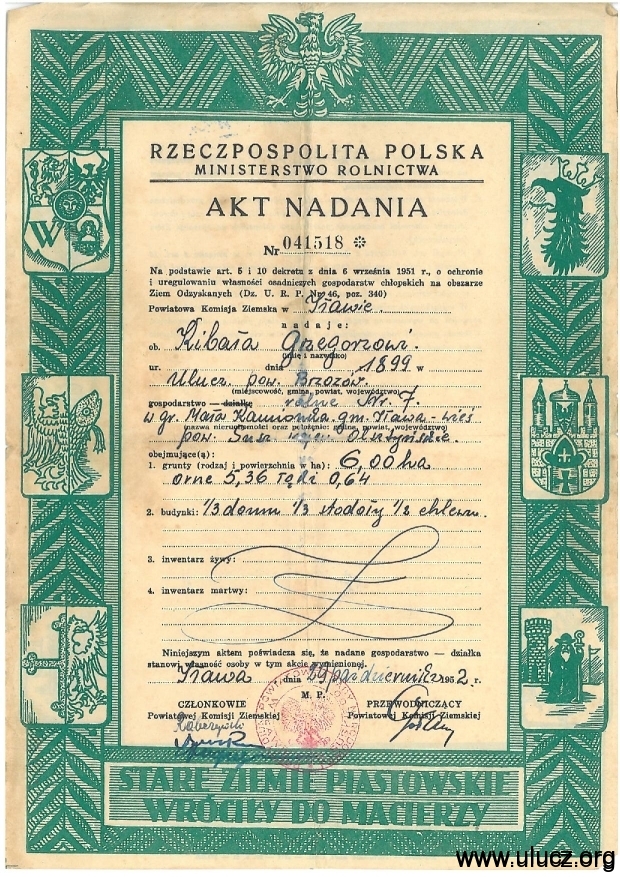 RZECZPOSPOLITA POLSKA
MINISTERSTWO ROLNICTWA
AKT NADANIA
Nr 041518 *
Na podstawie art. 5 i 10 dekretu z dnia 6 września 1951 r., o ochronie
i uregulowaniu własności osadniczych gospodarstw chłopskich na obszarze
Ziem Odzyskanych (Dz. U. R. P. Nr 46, poz. 340)
Powiatowa Komisja Ziemska w Iławie.
nadaje:
ob. Kibała Grzegorzowi.
(imię i nazwisko)
ur. dnia 1899 w
Ulucz. pow. Brzozów.
(miejscowość, gmina, powiat, województwo)
gospodarstwo — działkę rolne Nr. 7.
w gr. Mała Kamionka. gm. Iława-wieś
(nazwa nieruchomości oraz położenie: gmina, powiat, województwo)
pow. Susz woj. Olsztyńskie.
obejmujące(a):
1. grunty (rodzaj i powierzchnia w ha): 6,00 ha
orne 5,36 łąki 0,64
2. budynki: 1/3 domu 1/3 stodoły 1/2 chlewu.
3. inwentarz żywy:
4. inwentarz martwy:
Niniejszym aktem poświadcza się, że nadane gospodarstwo — działka
stanowi własność osoby w tym akcie wymienionej.
Iława dnia 29 października 1952 r.
M. P.
CZŁONKOWIE PRZEWODNICZĄCY
Powiatowej Komisji Ziemskiej Powiatowej Komisji Ziemskiej
STARE ZIEMIE PIASTOWSKIE
WRÓCIŁY DO MACIERZY
www.ulucz.org